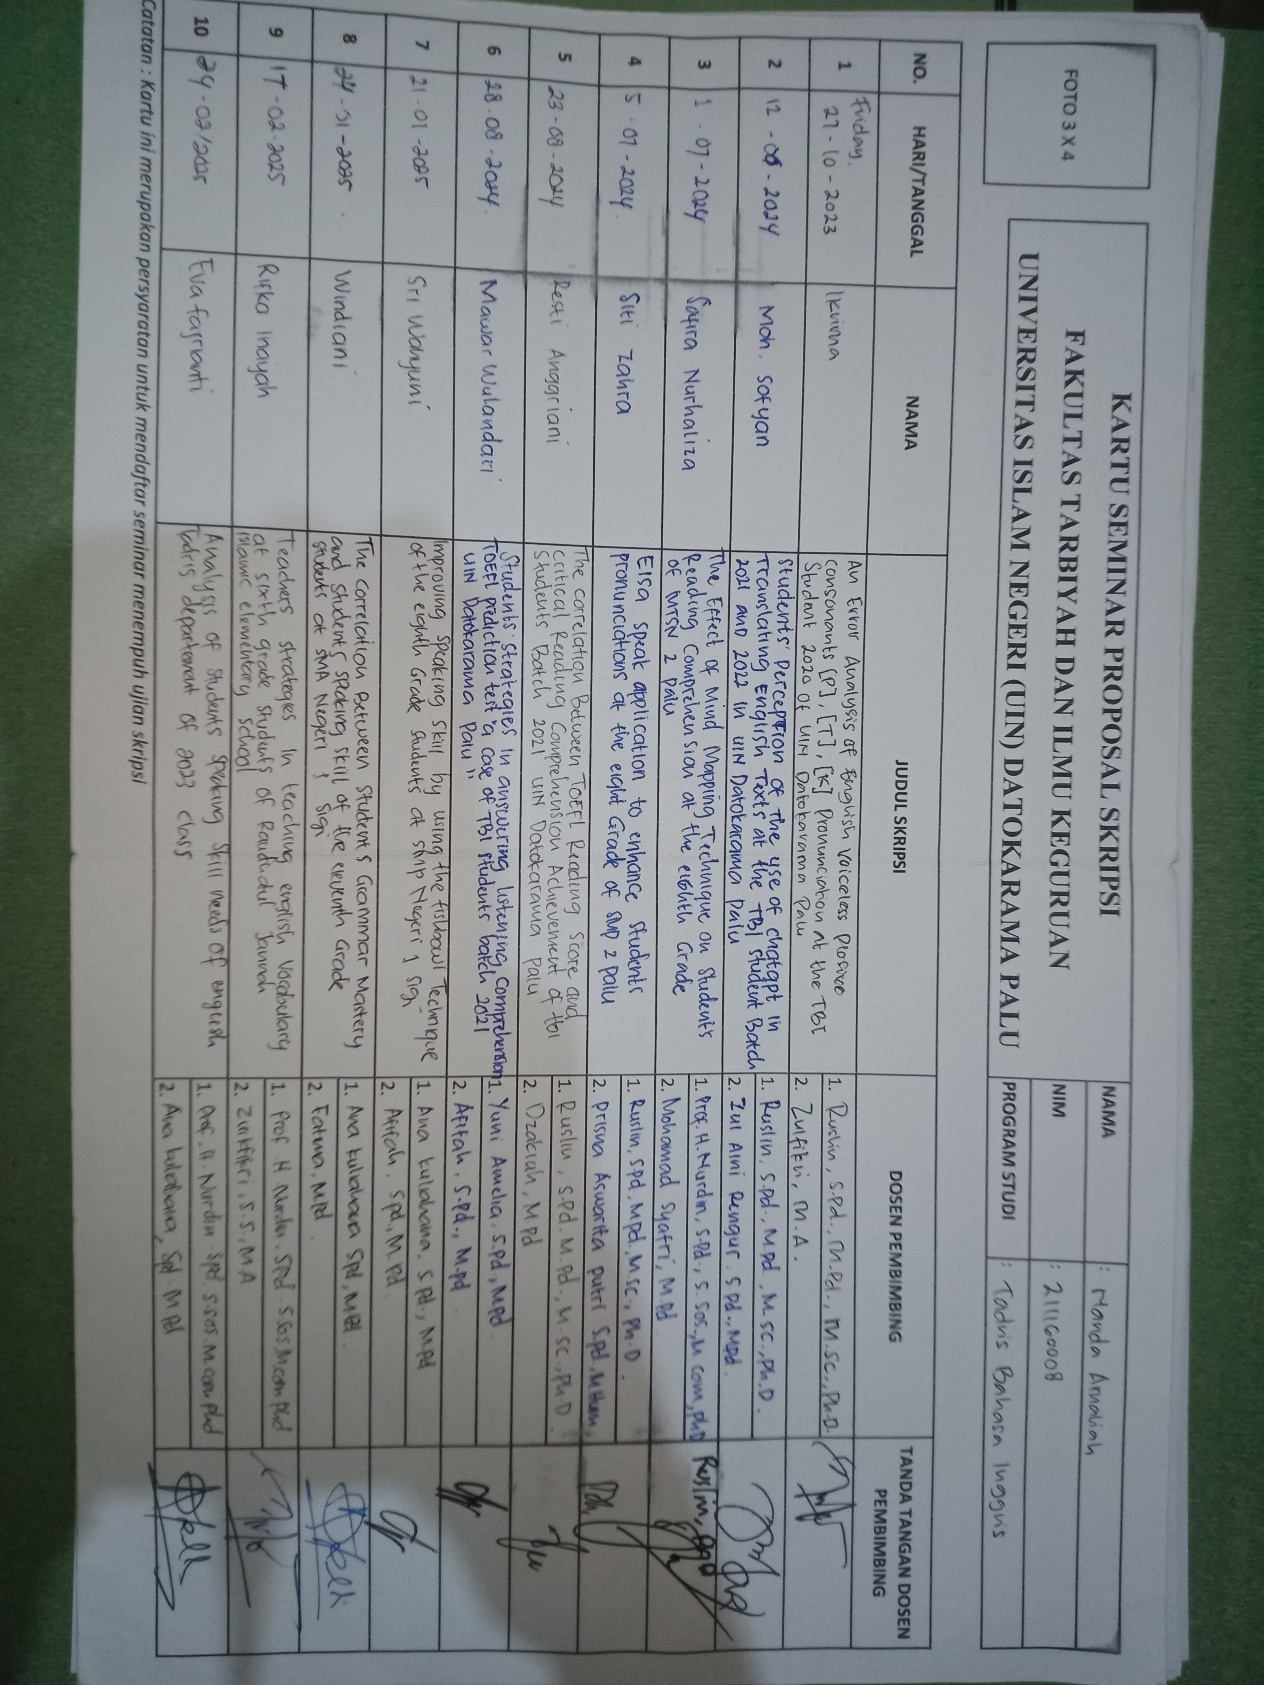 FOTO 3 X 4
KARTU SEMINAR PROPOSAL SKRIPSI
FAKULTAS TARBIYAH DAN ILMU KEGURUAN
UNIVERSITAS ISLAM NEGERI (UIN) DATOKARAMA PALU
NAMA : Nanda Amaliah
NIM : 211160008
PROGRAM STUDI : Tadris Bahasa Inggris
NO. HARI/TANGGAL NAMA JUDUL SKRIPSI DOSEN PEMBIMBING TANDA TANGAN DOSEN PEMBIMBING
1 Friday, 27-10-2023 Ikrima
An Error Analysis of English Voiceless Plosive
consonants [P], [T], [K] Pronunciation at the TBI
Student 2020 of UIN Datokarama Palu
1. Ruslin, S.Pd., M.Pd., M.Sc., Ph.D.
2. Zulfikri, M.A.
2 12-06-2024 Moh. Sofyan
Students' perception of the use of chatgpt in
Translating English Texts at the TBI student Batch
2021 and 2022 in UIN Datokarama Palu
1. Ruslin, S.Pd., M.Pd., M.Sc., Ph.D.
2. Zul Aini Rengur. S.Pd., M.Pd.
3 1-07-2024 Safira Nurhaliza
The Effect of Mind Mapping Technique on Students
Reading Comprehension at the eighth Grade
of MTSN 2 Palu
1. Prof. H. Nurdin, S.Pd., S.Sos., M.Com, Ph.D
2. Mohamad Syafri, M.Pd
4 5-07-2024. Siti Zahra
Elsa speak application to enhance students
pronunciations at the eight Grade of SMP 2 Palu
1. Ruslin, S.Pd, M.Pd, M.Sc., Ph.D.
2. Prisna Aswarita putri S.Pd., M.Hum,
5 23-08-2024 Resti Anggriani
The correlation Between TOEFL Reading Score and
Critical Reading Comprehension Achievement of tbi
Students Batch 2021 UIN Datokarama Palu
1. Ruslin, S.Pd. M.Pd., M.Sc., Ph.D.
2. Dzakiah, M.Pd
6 28-08-2024. Mawar Wulandari
Students' strategies in answering listening comprehension
TOEFL prediction test "a case of TBI students batch 2021
UIN Datokarama Palu"
1. Yuni Amelia, S.Pd, M.Pd.
2. Afifah, S.Pd., M.Pd.
7 21-01-2025 Sri Wahyuni
Improving speaking skill by using the fishbowl Technique
of the eighth Grade students at SMP Negeri 1 sigi
1. Ana kuliahana, S.Pd., M.Pd
2. Afifah. S.Pd, M.Pd.
8 24-01-2025. Windiani
The Correlation Between Student's Grammar Mastery
and Student's speaking skill of the eleventh Grade
students at SMA Negeri 1 Sigi
1. Ana kuliahana S.Pd, M.Pd.
2. Fatma, M.Pd.
9 17-02-2025 Rifka Inayah
Teachers strategies In teaching english Vocabulary
at sixth grade students of Raudhatul Jannah
islamic elementary school
1. Prof. H Nurdin. S.Pd S.Sos M.com Phd
2. Zulfikri, S.S, M.A
10 24-02/2025 Eva fajrianti
Analysis of students speaking skill needs of english
Tadris departement of 2023 class
1. Prof. H. Nurdin S.pd S.sos. M.com Phd
2. Ana kuliahana, Spd. M.Pd
Catatan : Kartu ini merupakan persyaratan untuk mendaftar seminar menempuh ujian skripsi